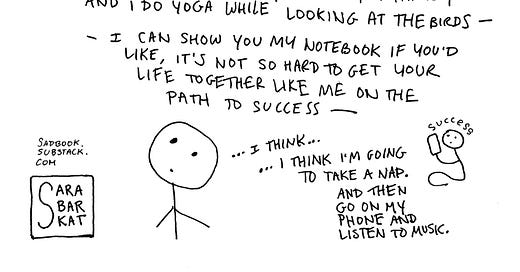 AND I DO YOGA WHILE
LOOKING AT THE BIRDS —
- I CAN SHOW YOU MY NOTEBOOK IF YOU'D
LIKE, IT'S NOT SO HARD TO GET YOUR
LIFE TOGETHER LIKE ME ON THE
PATH TO SUCCESS —
SADBOOK.
SUBSTACK.
COM
SARA
BAR
KAT
... I THINK...
... I THINK I'M GOING
TO TAKE A NAP.
AND THEN
GO ON MY
PHONE AND
LISTEN TO MUSIC.
SUCCESS